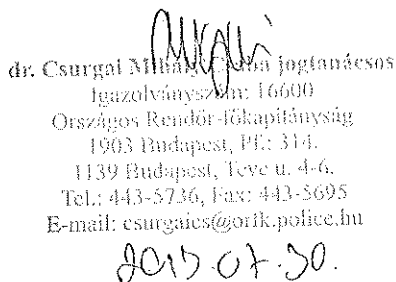 dr. Csurgai Mihály Csaba jogtanácsos
Igazolványszám: 16600
Országos Rendőr-főkapitányság
1903 Budapest, Pf.: 314.
1139 Budapest, Teve u. 4-6.
Tel.: 443-5736, Fax: 443-5695
E-mail: csurgaics@orfk.police.hu
07.30.